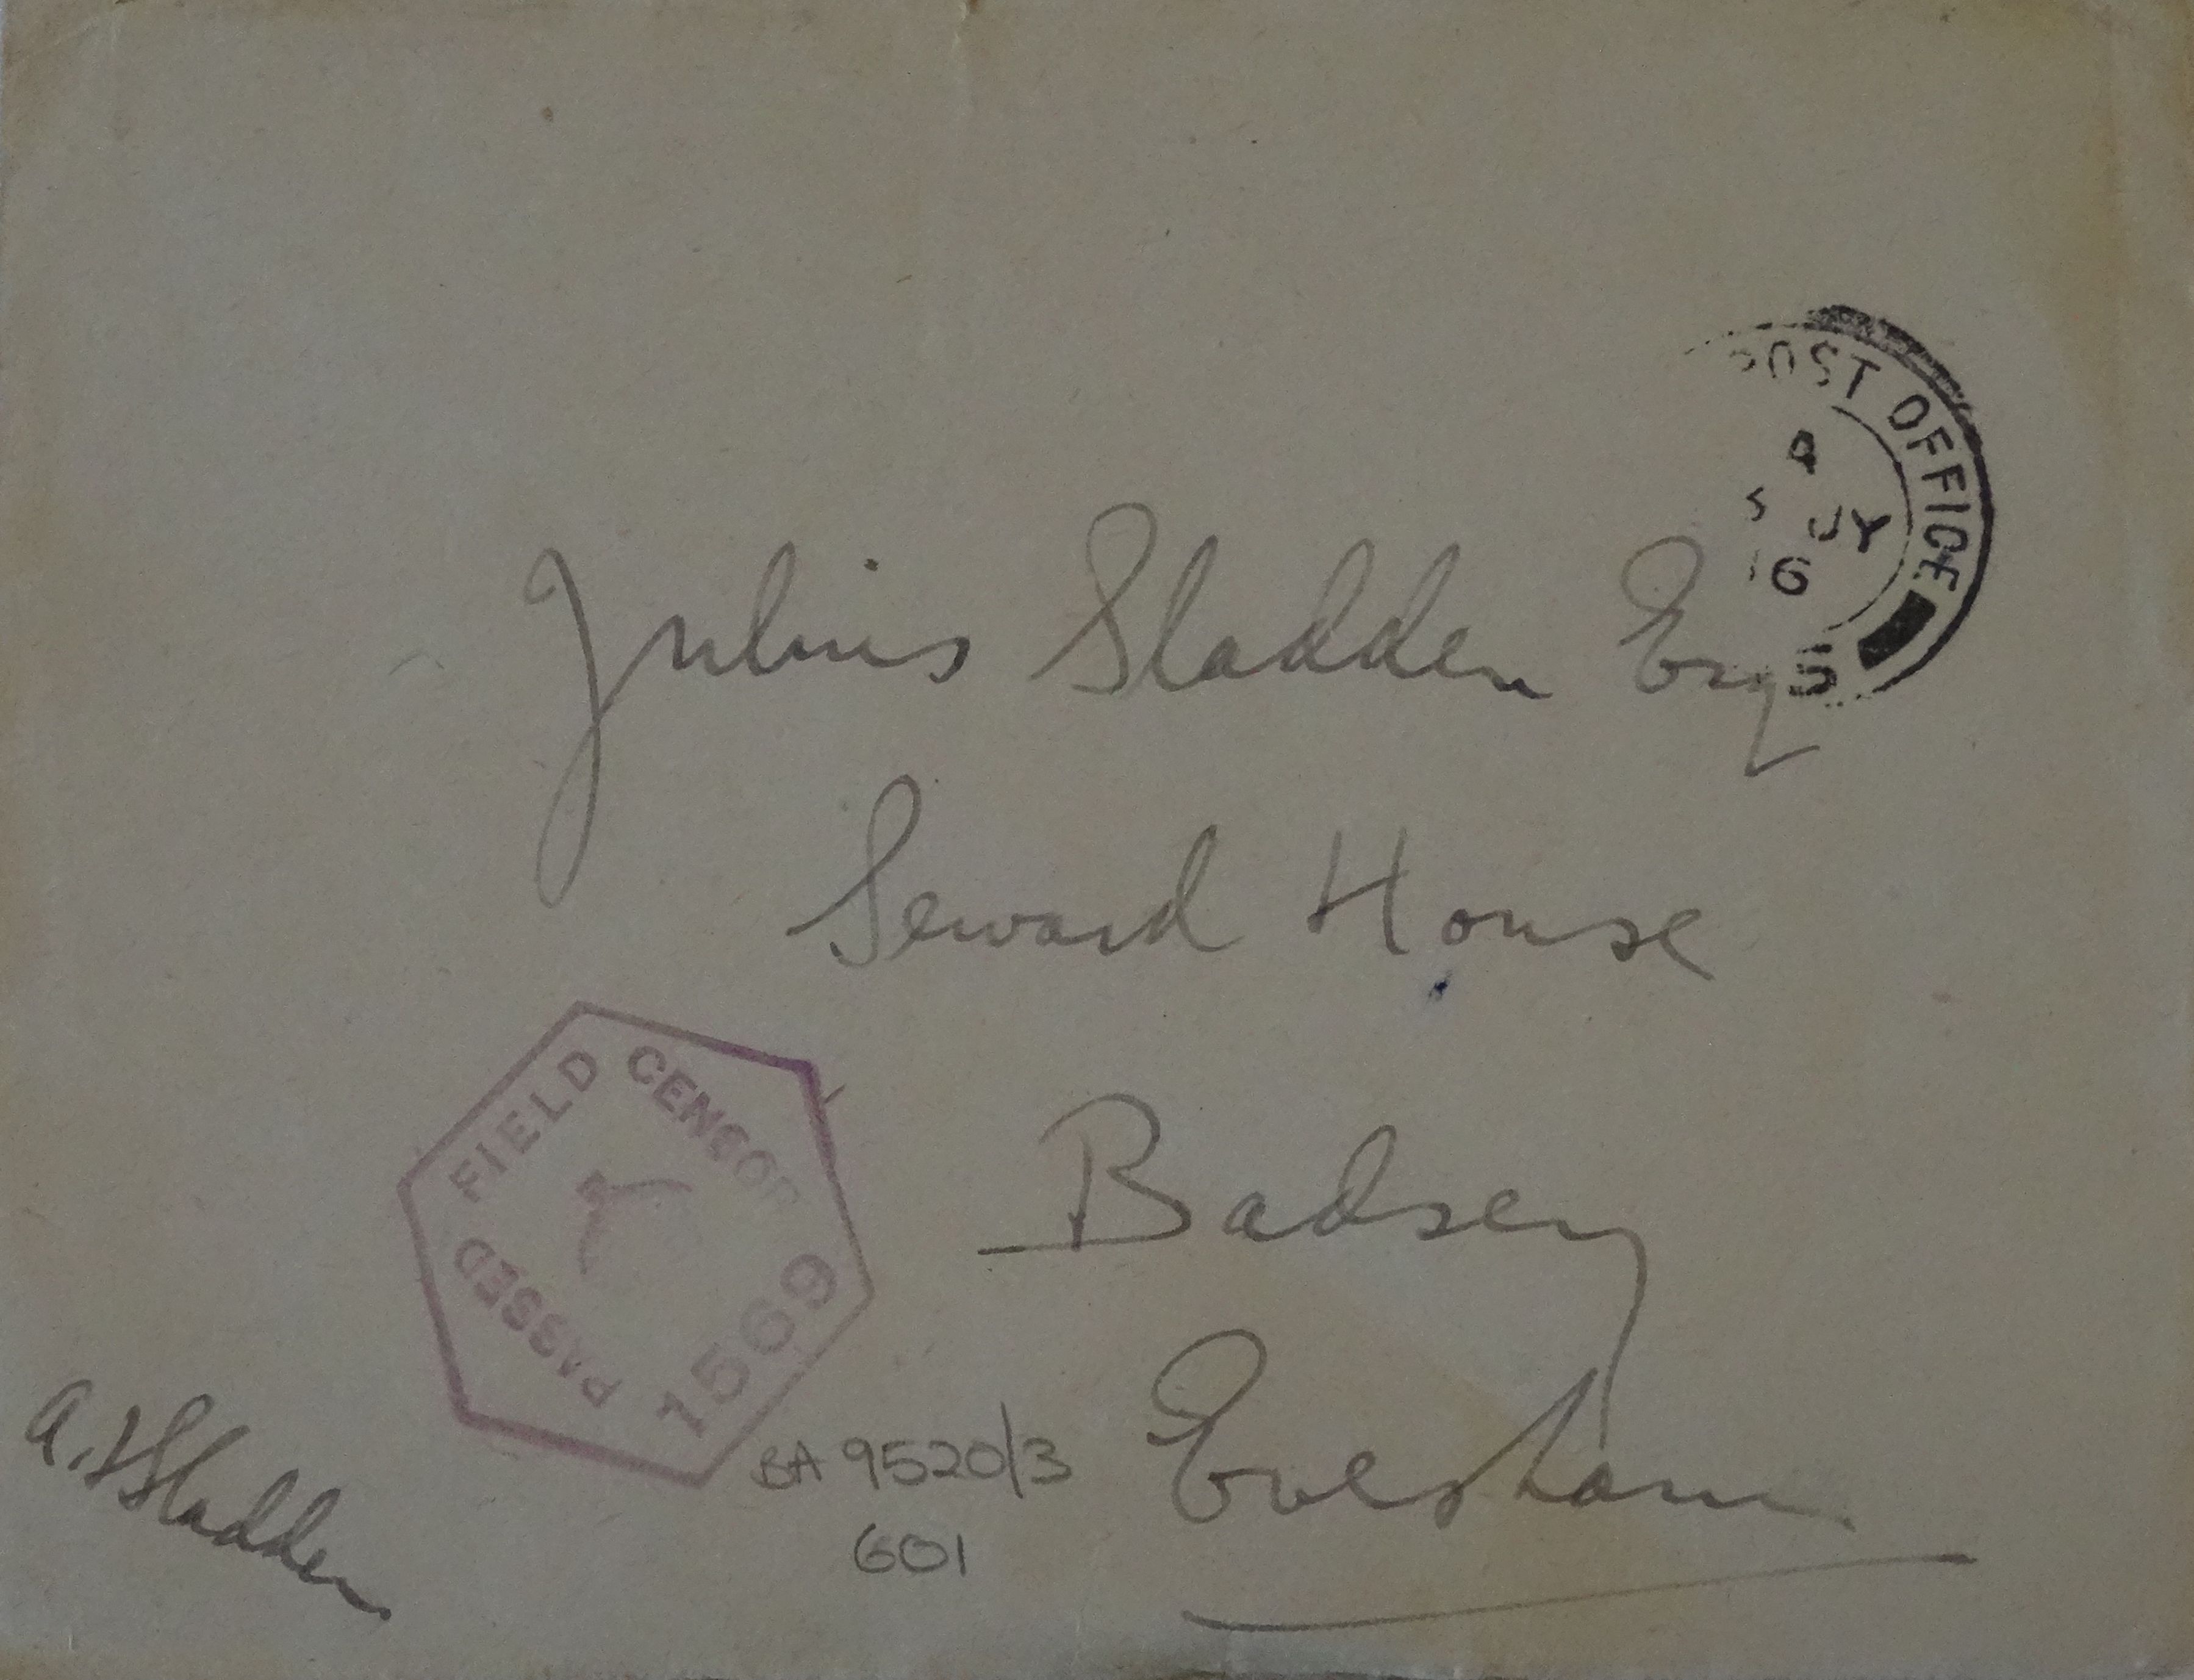 POST OFFICE
A
5 JY
16
5
Julius Sladden Esq
Seward House
Badsey
Evesham
FIELD CENSOR
PASSED
1569
A. F Sladden
BA 9520/3
601